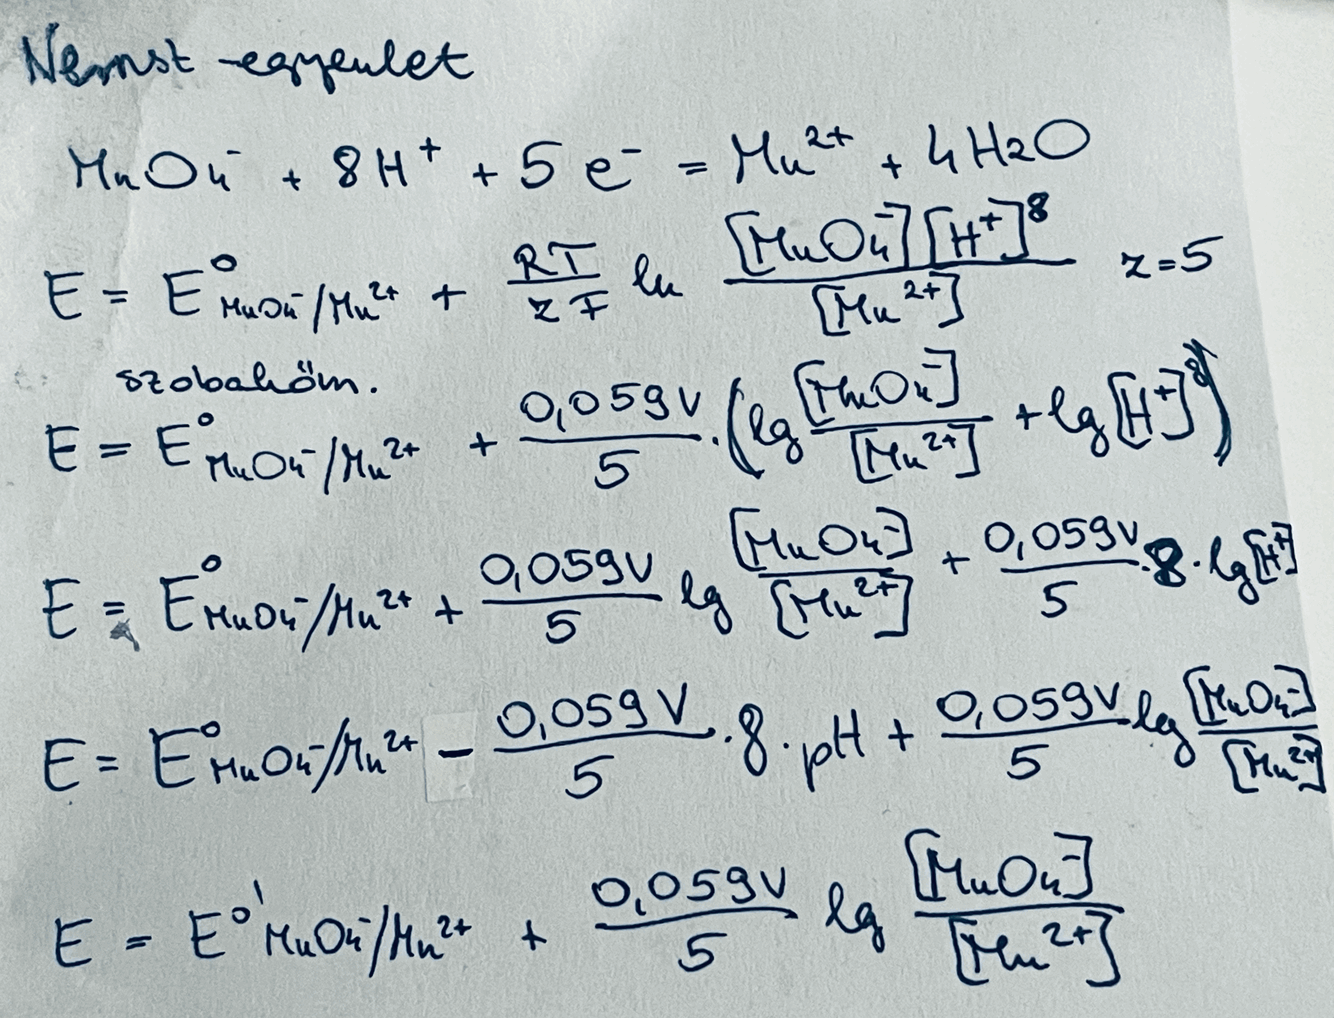 Nernst-egyenlet
MnO₄⁻ + 8H⁺ + 5e⁻ = Mn²⁺ + 4H₂O
E = E°MnO₄⁻/Mn²⁺ + RT/zF ln [MnO₄⁻][H⁺]⁸/[Mn²⁺] z=5
szobahőm.
E = E°MnO₄⁻/Mn²⁺ + 0,059V/5 · (lg [MnO₄⁻]/[Mn²⁺] + lg[H⁺]⁸)
E = E°MnO₄⁻/Mn²⁺ + 0,059V/5 lg [MnO₄⁻]/[Mn²⁺] + 0,059V/5 · 8 · lg[H⁺]
E = E°MnO₄⁻/Mn²⁺ - 0,059V/5 · 8 · pH + 0,059V/5 lg [MnO₄⁻]/[Mn²⁺]
E = E°'MnO₄⁻/Mn²⁺ + 0,059V/5 lg [MnO₄⁻]/[Mn²⁺]